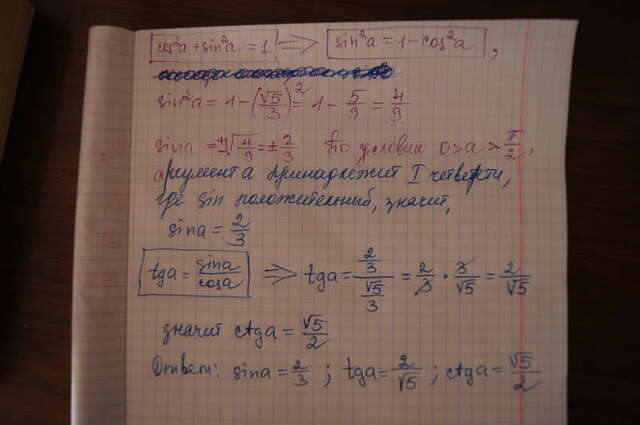 cos²a + sin²a = 1 ⇒ sin²a = 1 - cos²a,
sin²a = 1 - (√5/3)² = 1 - 5/9 = 4/9
sina = ±√4/9 = ± 2/3 По условию 0>a>π/2,
аргумент a принадлежит I четверти,
где sin положительный, значит,
sina = 2/3
tga = sina/cosa ⇒ tga = (2/3)/(√5/3) = 2/3 · 3/√5 = 2/√5
значит ctga = √5/2
Ответ: sina = 2/3 ; tga = 2/√5 ; ctga = √5/2